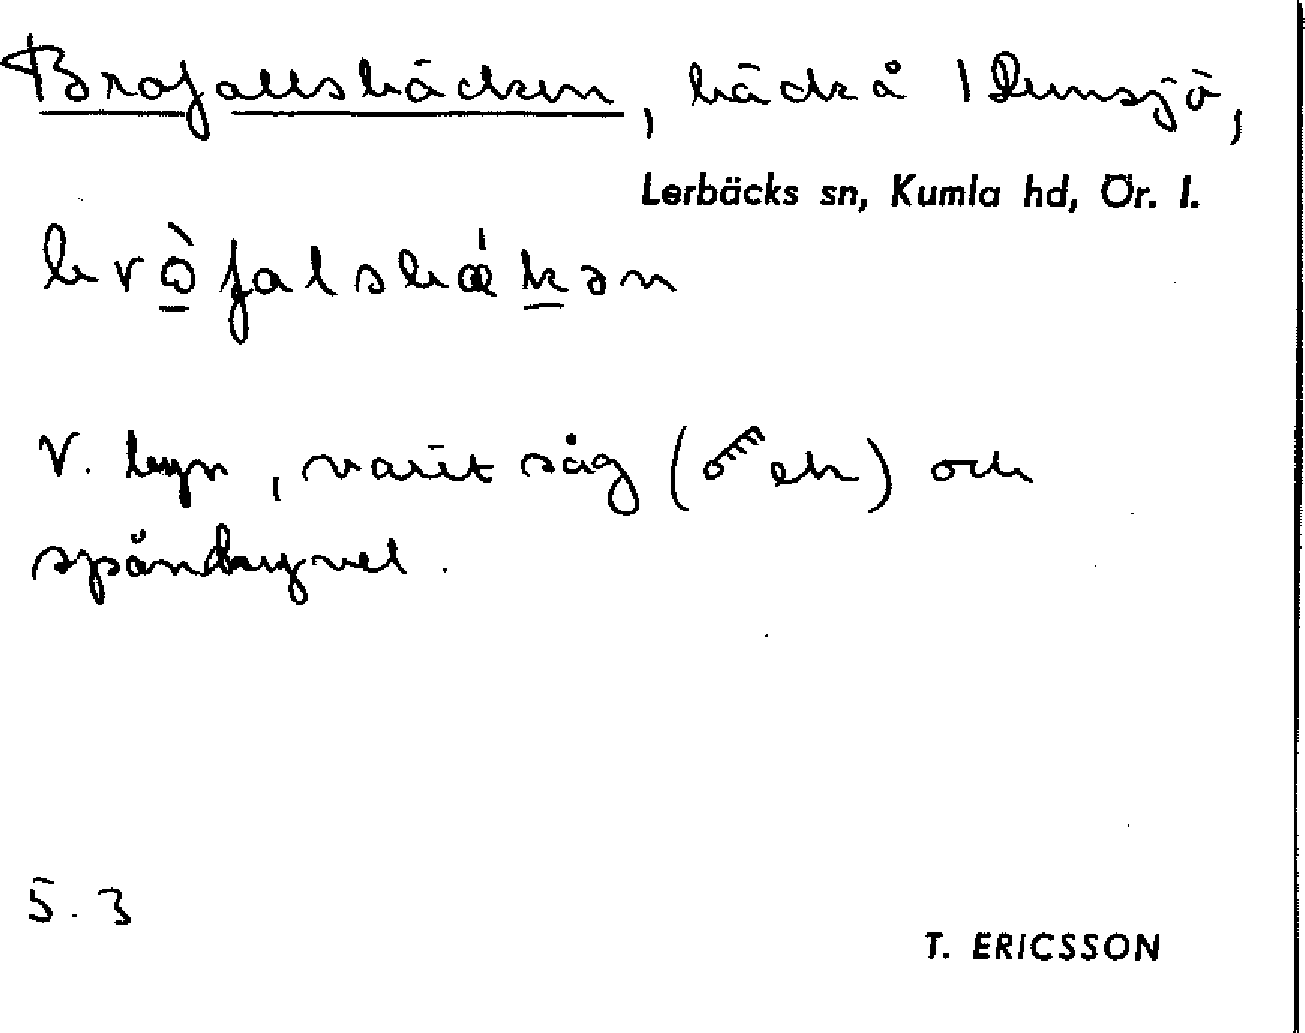 Brofallsbäcken, bäck å 1 Dunsjö,
Lerbäcks sn, Kumla hd, Ör. l.
brò̱falsbǽḵən
V. byn, varit såg ( eh) och
spånhyvel.
5.3
T. ERICSSON